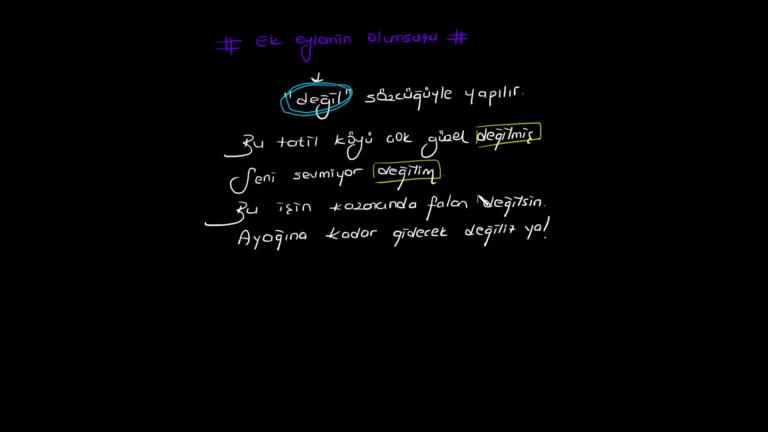 # Ek eylemin olumsuzu #
"değil" sözcüğüyle yapılır.
Bu tatil köyü çok güzel değilmiş
Seni sevmiyor değilim.
Bu işin kazancında falan değilsin.
Ayağına kadar gidecek değiliz ya!